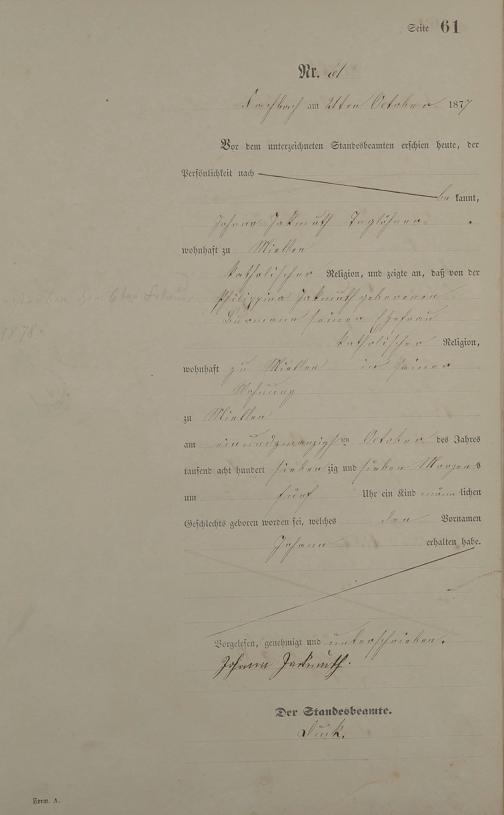 Seite 61
Nr. 61
Fachbach am 21ten October 1877
Vor dem unterzeichneten Standesbeamten erschien heute, der
Persönlichkeit nach
be kannt,
Johann Jackmuth Taglöhner
wohnhaft zu Miellen
katholischer Religion, und zeigte an, daß von der
Philippina Jackmuth geborenen
seiner Ehefrau
katholischer Religion,
wohnhaft zu Miellen in seiner
Wohnung
zu Miellen
am einundzwanzigsten October des Jahres
tausend acht hundert sieben zig und sieben Morgens
um fünf Uhr ein Kind männlichen
Geschlechts geboren worden sei, welches den Vornamen
Johann erhalten habe.
Vorgelesen, genehmigt und unterschrieben.
Johann Jackmuth.
Der Standesbeamte.
Form. A.